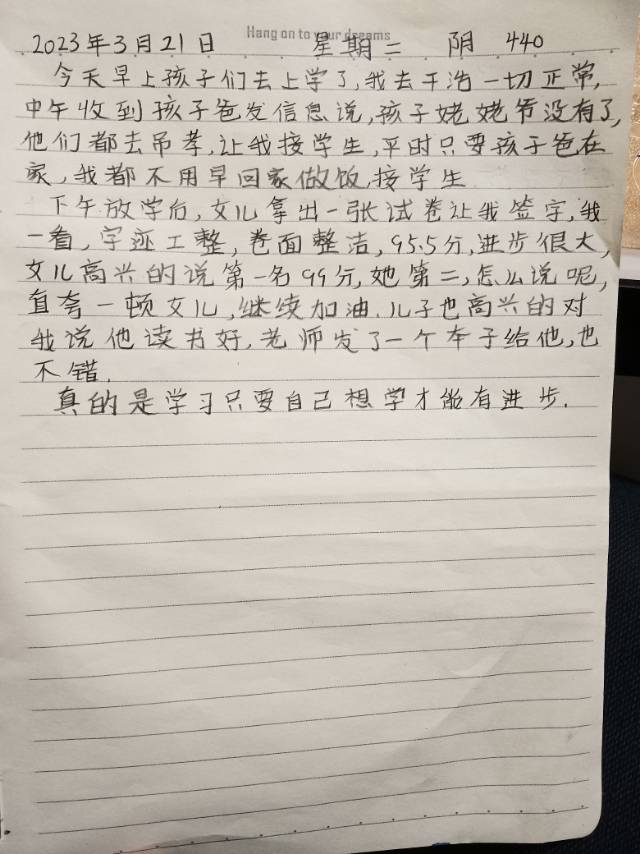 Hang on to your dreams
2023年3月21日 星期二 阴 440
今天早上孩子们去上学了,我去干活一切正常,
中午收到孩子爸发信息说,孩子姥姥爷没有了,
他们都去吊孝,让我接学生,平时只要孩子爸在
家,我都不用早回家做饭,接学生
下午放学后,女儿拿出一张试卷让我签字,我
一看,字迹工整,卷面整洁,95.5分,进步很大,
女儿高兴的说第一名99分,她第二,怎么说呢,
直夸一顿女儿,继续加油.儿子也高兴的对
我说他读书好,老师发了一个本子给他,也
不错.
真的是学习只要自己想学才能有进步.